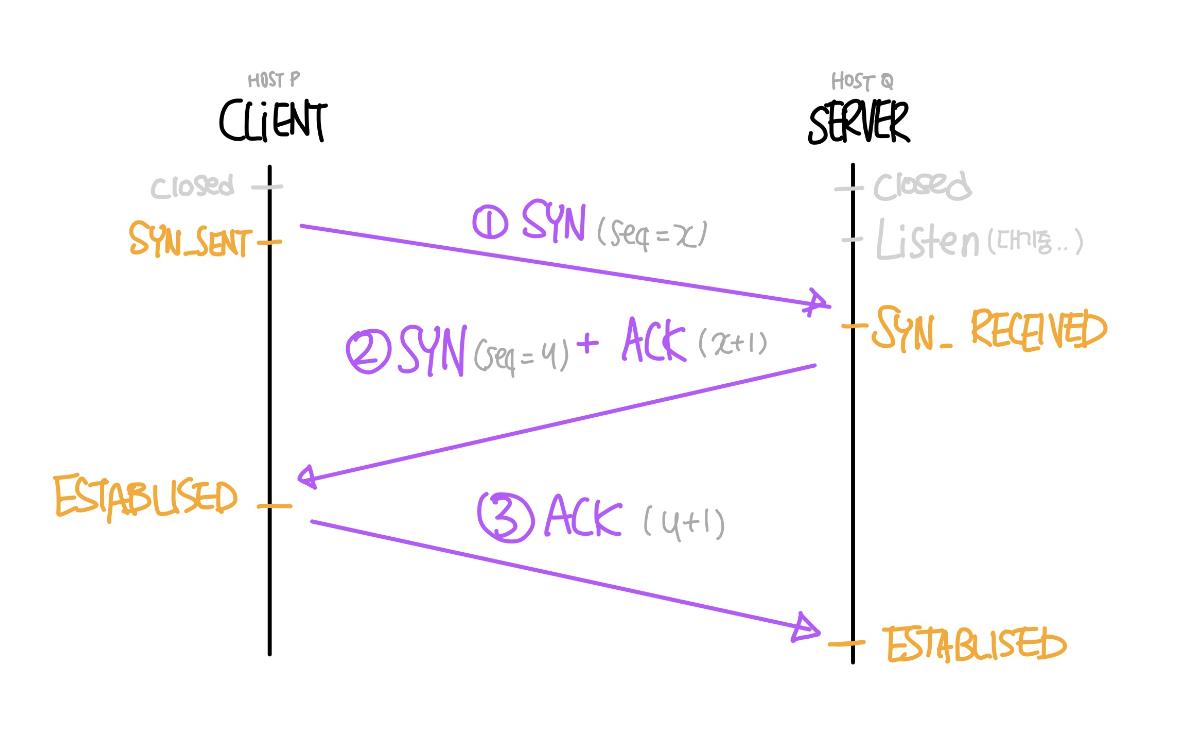 HOST P
CLIENT
HOST Q
SERVER
closed
closed
SYN_SENT
① SYN (seq=x)
Listen (대기중..)
SYN_ RECEIVED
② SYN (seq=y) + ACK (x+1)
ESTABLISED
③ ACK (y+1)
ESTABLISED